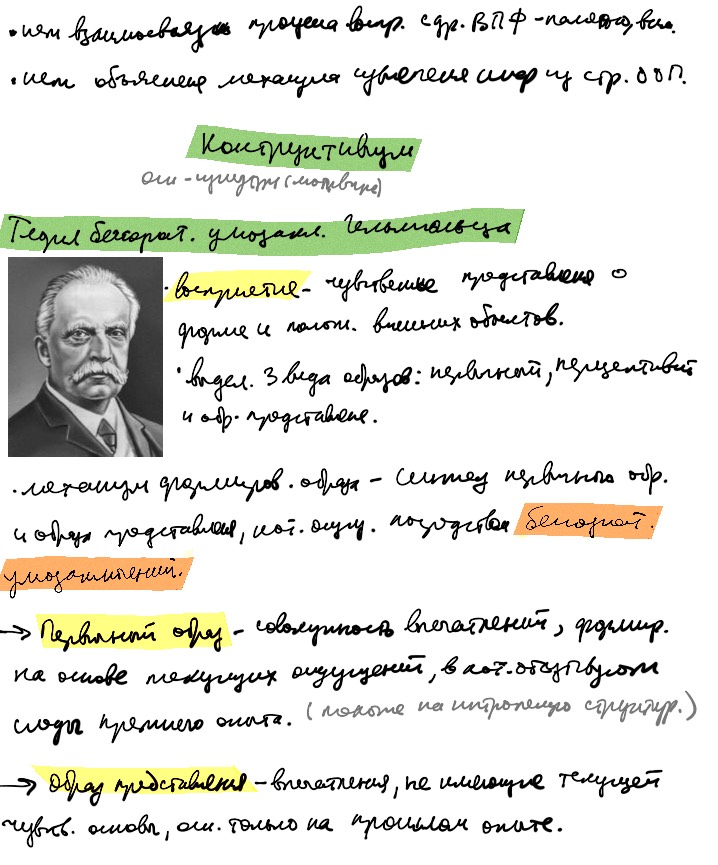 • нет взаимосвязи процесса воспр. с др. ВПФ – памятью,
• нет объяснения механизма извлечения инф из стр. ООП.
Конструктивизм
Теория бессознат. умозакл. Гельмгольца
• восприятие – чувственные представления о
форме и полож. внешних объектов.
• выдел. 3 вида образов: первичный, перцептивный
и обр. представления.
• механизм формиров. образа – синтез первичного обр.
и образа представления, кот. осущ. посредством бессознат.
умозаключений.
→ Первичный образ – совокупность впечатлений, формир.
на основе текущих ощущений, в кот. отсутствуют
следы прежнего опыта. (похоже на интроспекцию структур.)
→ Образ представления – впечатления, не имеющие текущей
чувств. основы, осн. только на прошлом опыте.